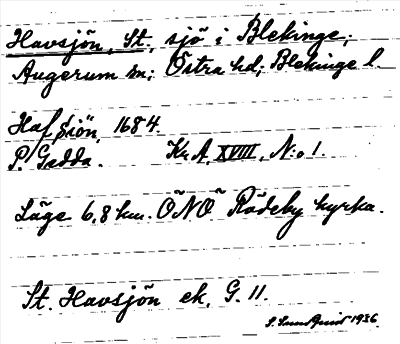 Havsjön, St., sjö i Blekinge;
Augerum sn; Östra hd; Blekinge l.
Hafsiön, 1684.
P. Gedda. Kr A, XVIII, N:o 1.
Läge 6,8 km. ÖNÖ Rödeby kyrka.
St. Havsjön ek. G. 11.
S. Sundquist 1936